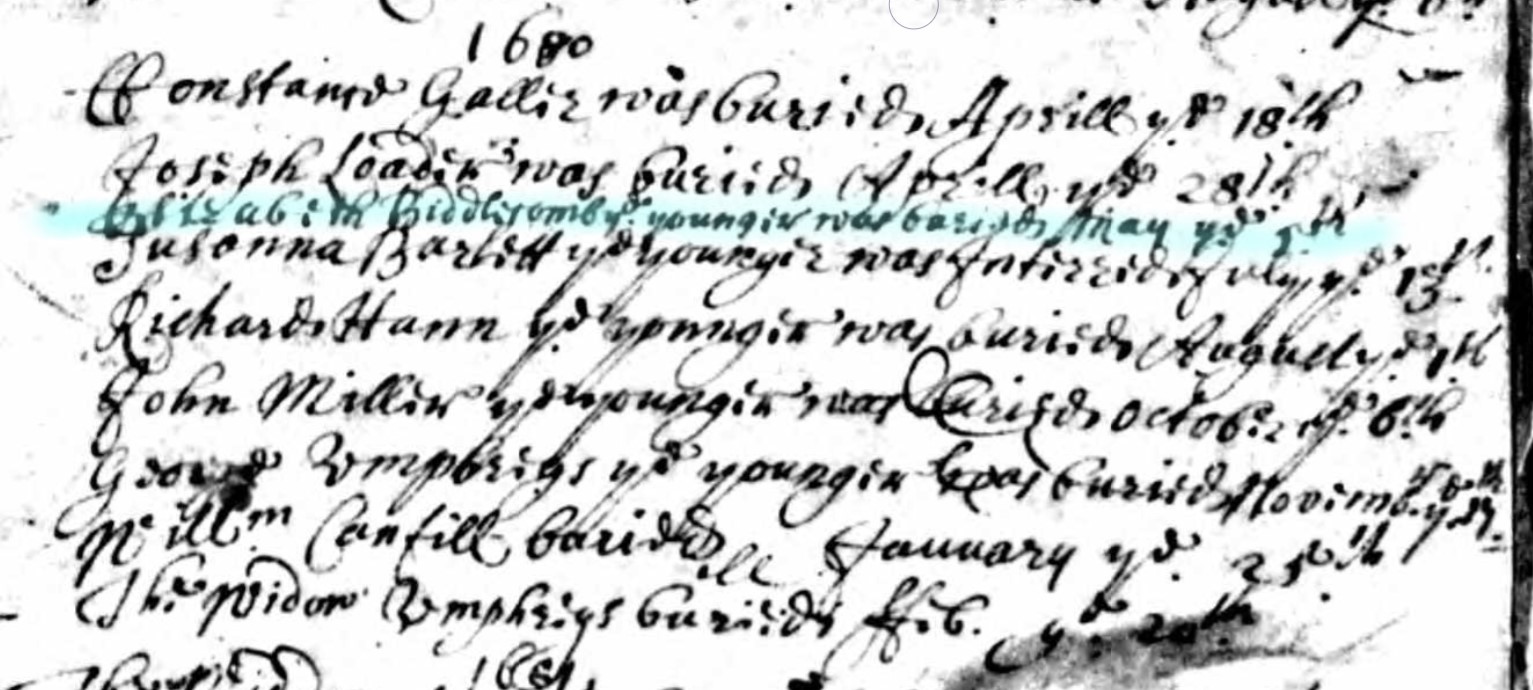 1680
Constance Galler was buried Aprill ye 18th
Joseph Loader was buried Aprill ye 28th
Elizabeth Biddlecomb ye younger was buried May ye 5th
Susanna Bartlett ye younger was Interred July ye 13th
Richard Hann ye younger was buried August ye
John Miller ye younger was Buried October ye 6th
George Vmphreys ye younger was buried Novemb. ye
Willm Canfill buried January ye 25th
The Widow Vmphreys buried ffeb. ye 20th
1681